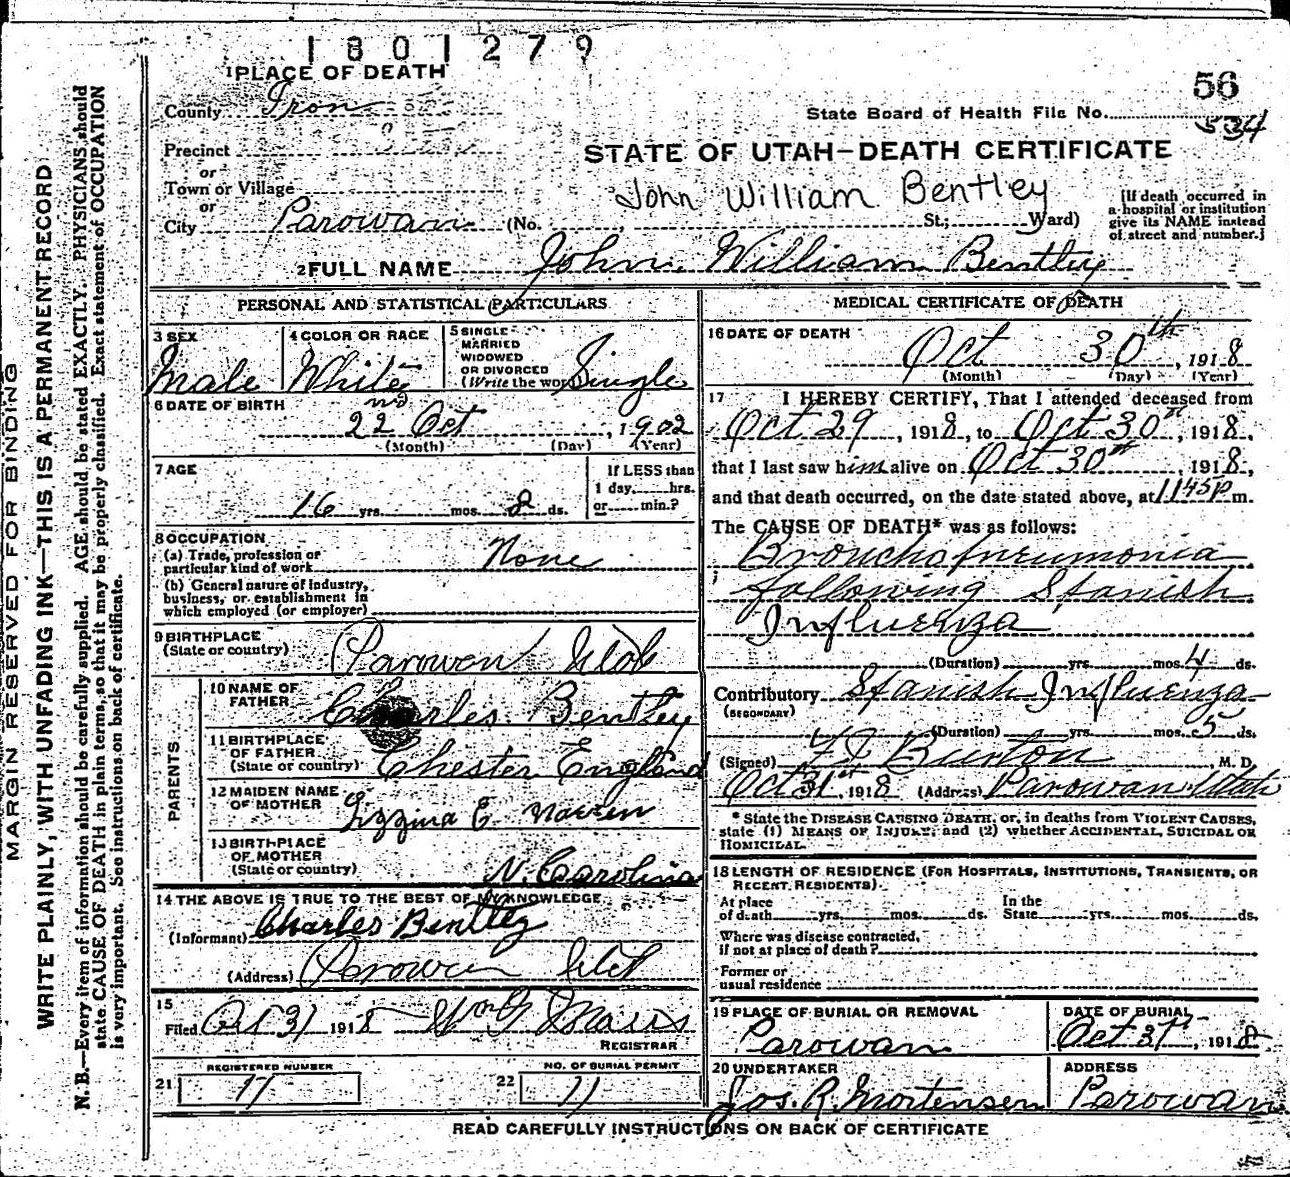 1801279
1 PLACE OF DEATH
56
County Iron
State Board of Health File No. 534
Precinct
or
STATE OF UTAH—DEATH CERTIFICATE
Town or Village
John William Bentley
or
City Parowan (No. St.; Ward)
[If death occurred in a hospital or institution give its NAME instead of street and number.]
2 FULL NAME John William Bentley
PERSONAL AND STATISTICAL PARTICULARS
3 SEX
Male
4 COLOR OR RACE
White
5 SINGLE
MARRIED
WIDOWED
OR DIVORCED
(Write the word) Single
6 DATE OF BIRTH
22nd Oct, 1902
(Month) (Day) (Year)
7 AGE
16 yrs. mos. 8 ds.
If LESS than
1 day, hrs.
or min.?
8 OCCUPATION
(a) Trade, profession or
particular kind of work None
(b) General nature of industry,
business, or establishment in
which employed (or employer)
9 BIRTHPLACE
(State or country) Parowan Utah
PARENTS
10 NAME OF
FATHER Charles Bentley
11 BIRTHPLACE
OF FATHER
(State or country) Chester England
12 MAIDEN NAME
OF MOTHER E
13 BIRTHPLACE
OF MOTHER
(State or country) N. Carolina
14 THE ABOVE IS TRUE TO THE BEST OF MY KNOWLEDGE
(Informant) Charles Bentley
(Address) Parowan Utah
15
Filed Oct 31 1918 Wm G
REGISTRAR
REGISTERED NUMBER
21 11
NO. OF BURIAL PERMIT
22 11
MEDICAL CERTIFICATE OF DEATH
16 DATE OF DEATH
Oct 30th, 1918
(Month) (Day) (Year)
17 I HEREBY CERTIFY, That I attended deceased from
Oct 29, 1918, to Oct 30th, 1918,
that I last saw him alive on Oct 30th, 1918,
and that death occurred, on the date stated above, at 1145 P m.
The CAUSE OF DEATH* was as follows:
Broncho pneumonia
following Spanish
Influenza
(Duration) yrs. mos. 4 ds.
Contributory Spanish Influenza
(SECONDARY)
(Duration) yrs. mos. 5 ds.
(Signed) Burton, M. D.
Oct 31st, 1918 (Address) Parowan Utah
* State the DISEASE CAUSING DEATH, or, in deaths from VIOLENT CAUSES,
state (1) MEANS OF INJURY; and (2) whether ACCIDENTAL, SUICIDAL OR
HOMICIDAL.
18 LENGTH OF RESIDENCE (FOR HOSPITALS, INSTITUTIONS, TRANSIENTS, OR
RECENT RESIDENTS).
At place In the
of death yrs. mos. ds. State yrs. mos. ds.
Where was disease contracted,
if not at place of death?
Former or
usual residence
19 PLACE OF BURIAL OR REMOVAL
Parowan
DATE OF BURIAL
Oct 31st, 1918
20 UNDERTAKER
Jos. R. Mortensen
ADDRESS
Parowan
READ CAREFULLY INSTRUCTIONS ON BACK OF CERTIFICATE
MARGIN RESERVED FOR BINDING
WRITE PLAINLY, WITH UNFADING INK—THIS IS A PERMANENT RECORD
N. B.—Every item of information should be carefully supplied. AGE should be stated EXACTLY. PHYSICIANS should
state CAUSE OF DEATH in plain terms, so that it may be properly classified. Exact statement of OCCUPATION
is very important. See instructions on back of certificate.